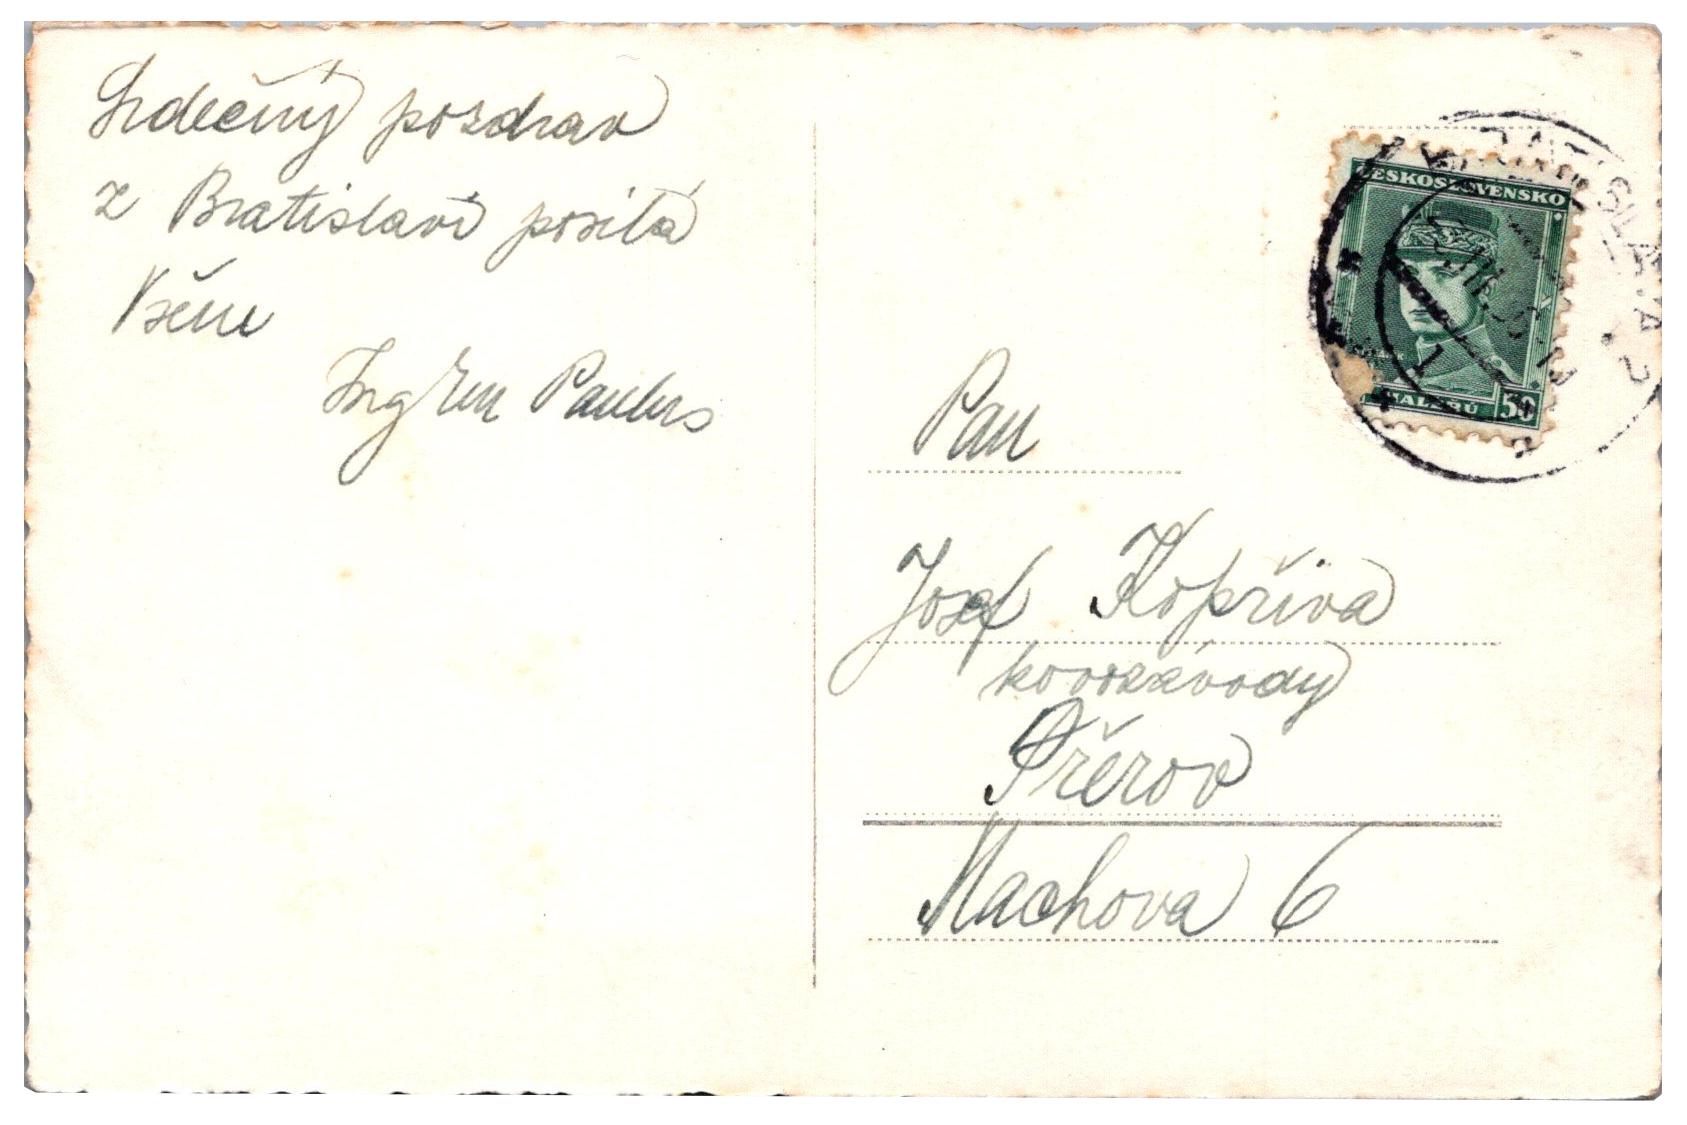 Srdečný pozdrav
z Bratislavi posílá
Všem
Paulus
ČESKOSLOVENSKO
HALÉŘŮ 50
BRATISLAVA 2
Pan
Josef Kopřiva
kovozávody
Přérov
Machova 6